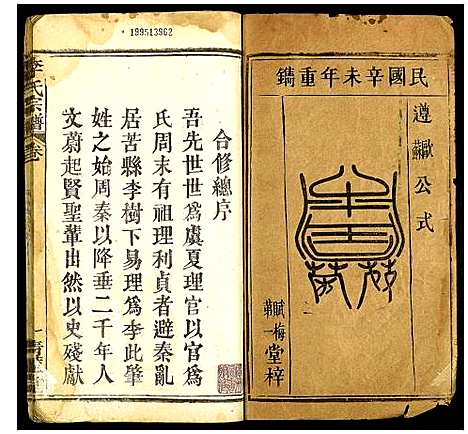 民國辛未年重鐫
遵歐蘇公式
賦梅第一堂梓
199513962
合修總序
吾先世世爲虞夏理官以官爲
氏周末有祖理利貞者避秦亂
居苦縣李樹下易理爲李此肇
姓之始周秦以降垂二千年人
文蔚起賢聖輩出然以史殘獻
李氏宗譜
卷一